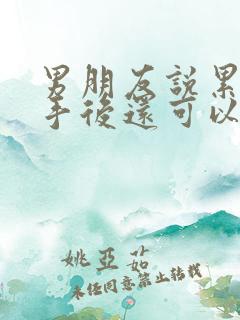 男朋友說累
手後還可以
姚亞茹
未經同意禁止轉載